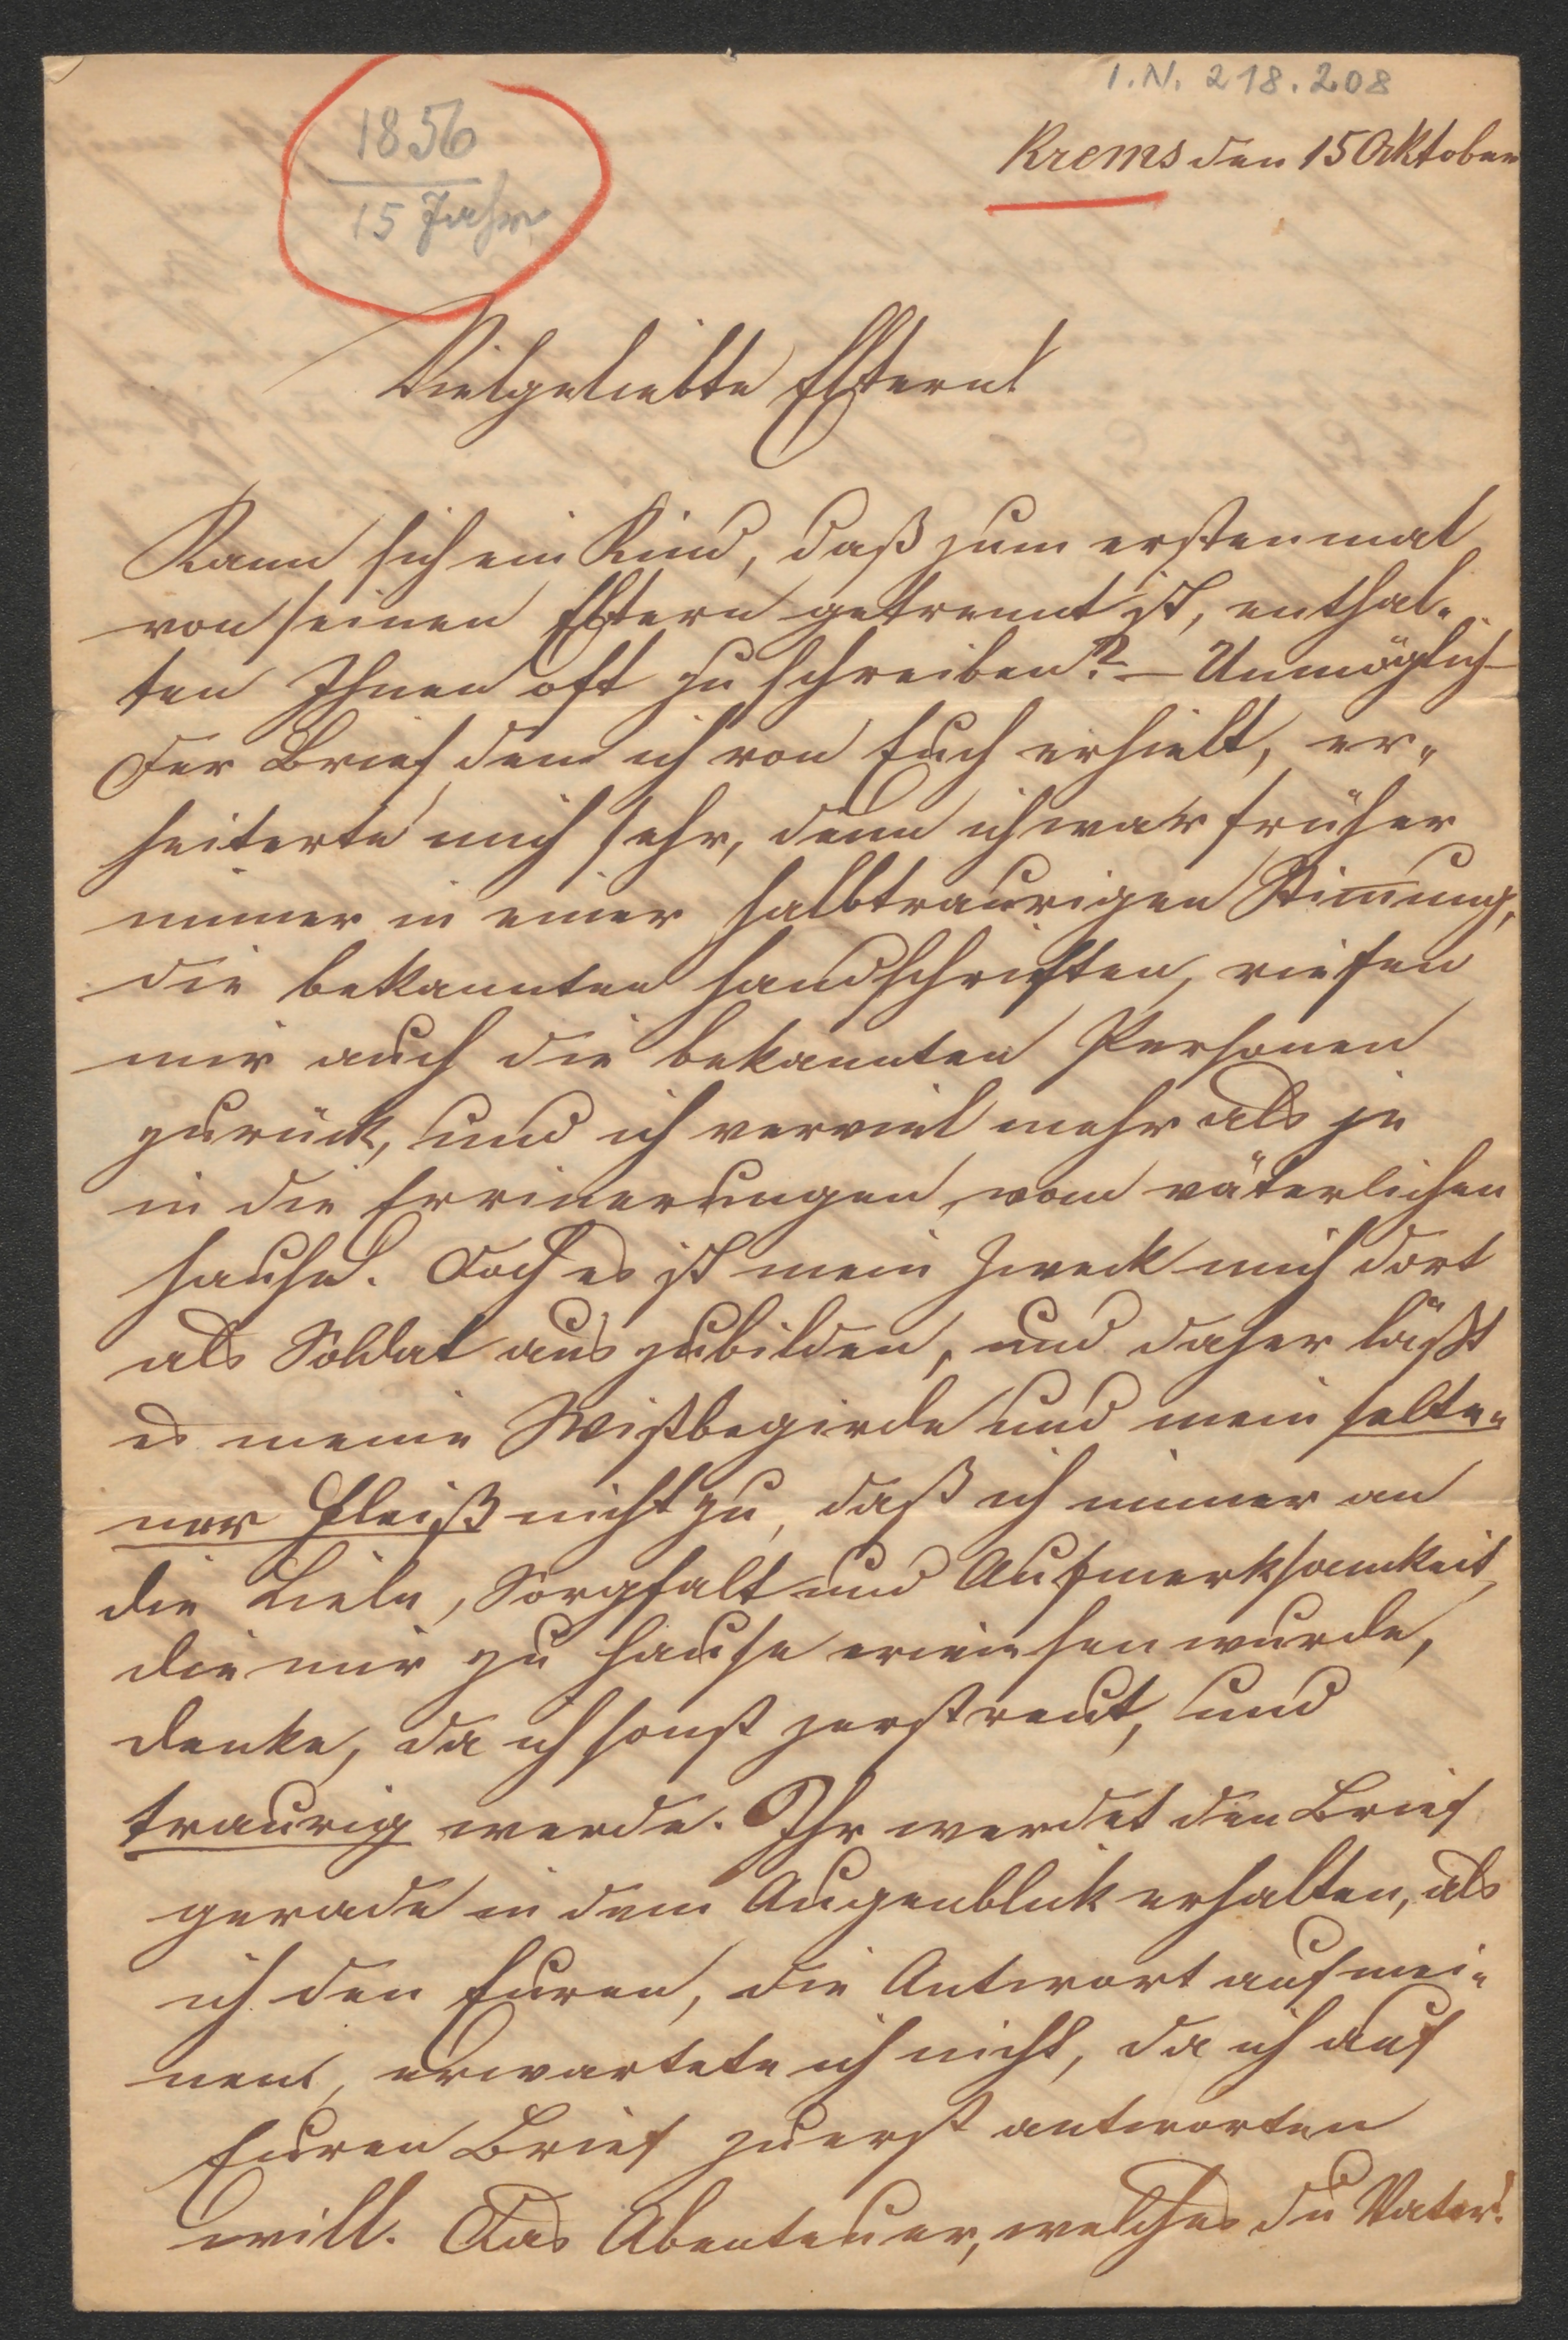 I.N. 218.208
1856
15 Jahr
Krems den 15 Oktober
Vielgeliebte Eltern!
Kann sich ein Kind, daß zum erstenmal
von seinen Eltern getrennt ist, enthal-
ten Ihnen oft zu schreiben? – Unmöglich –
Der Brief, den ich von Euch erhielt, er-
heiterte mich sehr, denn ich war früher
immer in einer halbtraurigen Stimung,
die bekannten Handschriften, riefen
mir auch die bekannten Personen
zurück, und ich verviel mehr als je
in die Errinerungen vom väterlichen
Hause. Doch es ist mein Zweck mich dort
als Soldat auszubilden, und daher läßt
es meine Wißbegirde und mein selte-
ner Fleiß nicht zu, daß ich immer an
die Liebe, Sorgfalt und Aufmerksamkeit,
die mir zu Hause erwiesen wurde,
denke, da ich sonst zerstreut, und
traurig werde. Ihr werdet den Brief
gerade in dem Augenblick erhalten, als
ich den Euren, die Antwort auf mei-
nen, erwartete ich nicht, da ich auf
Euren Brief zuerst antworten
will. Das Abenteuer, welches du Vater!